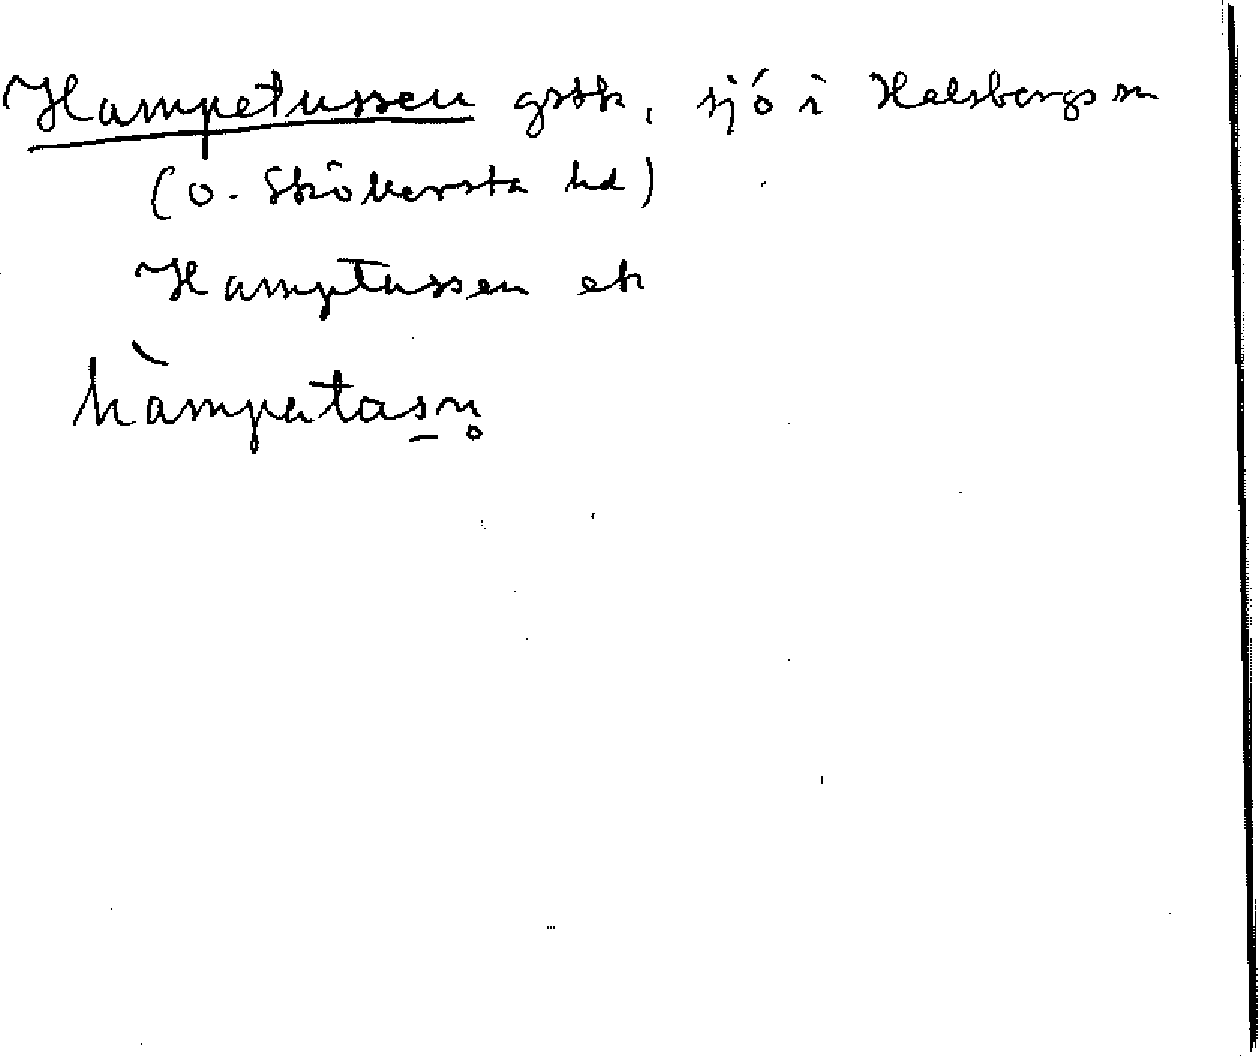 Hampetussen gstk, sjö i Halsbergs sn
(o. Sköllersta hd)
Hamptussen ek
hàmpatasn̥